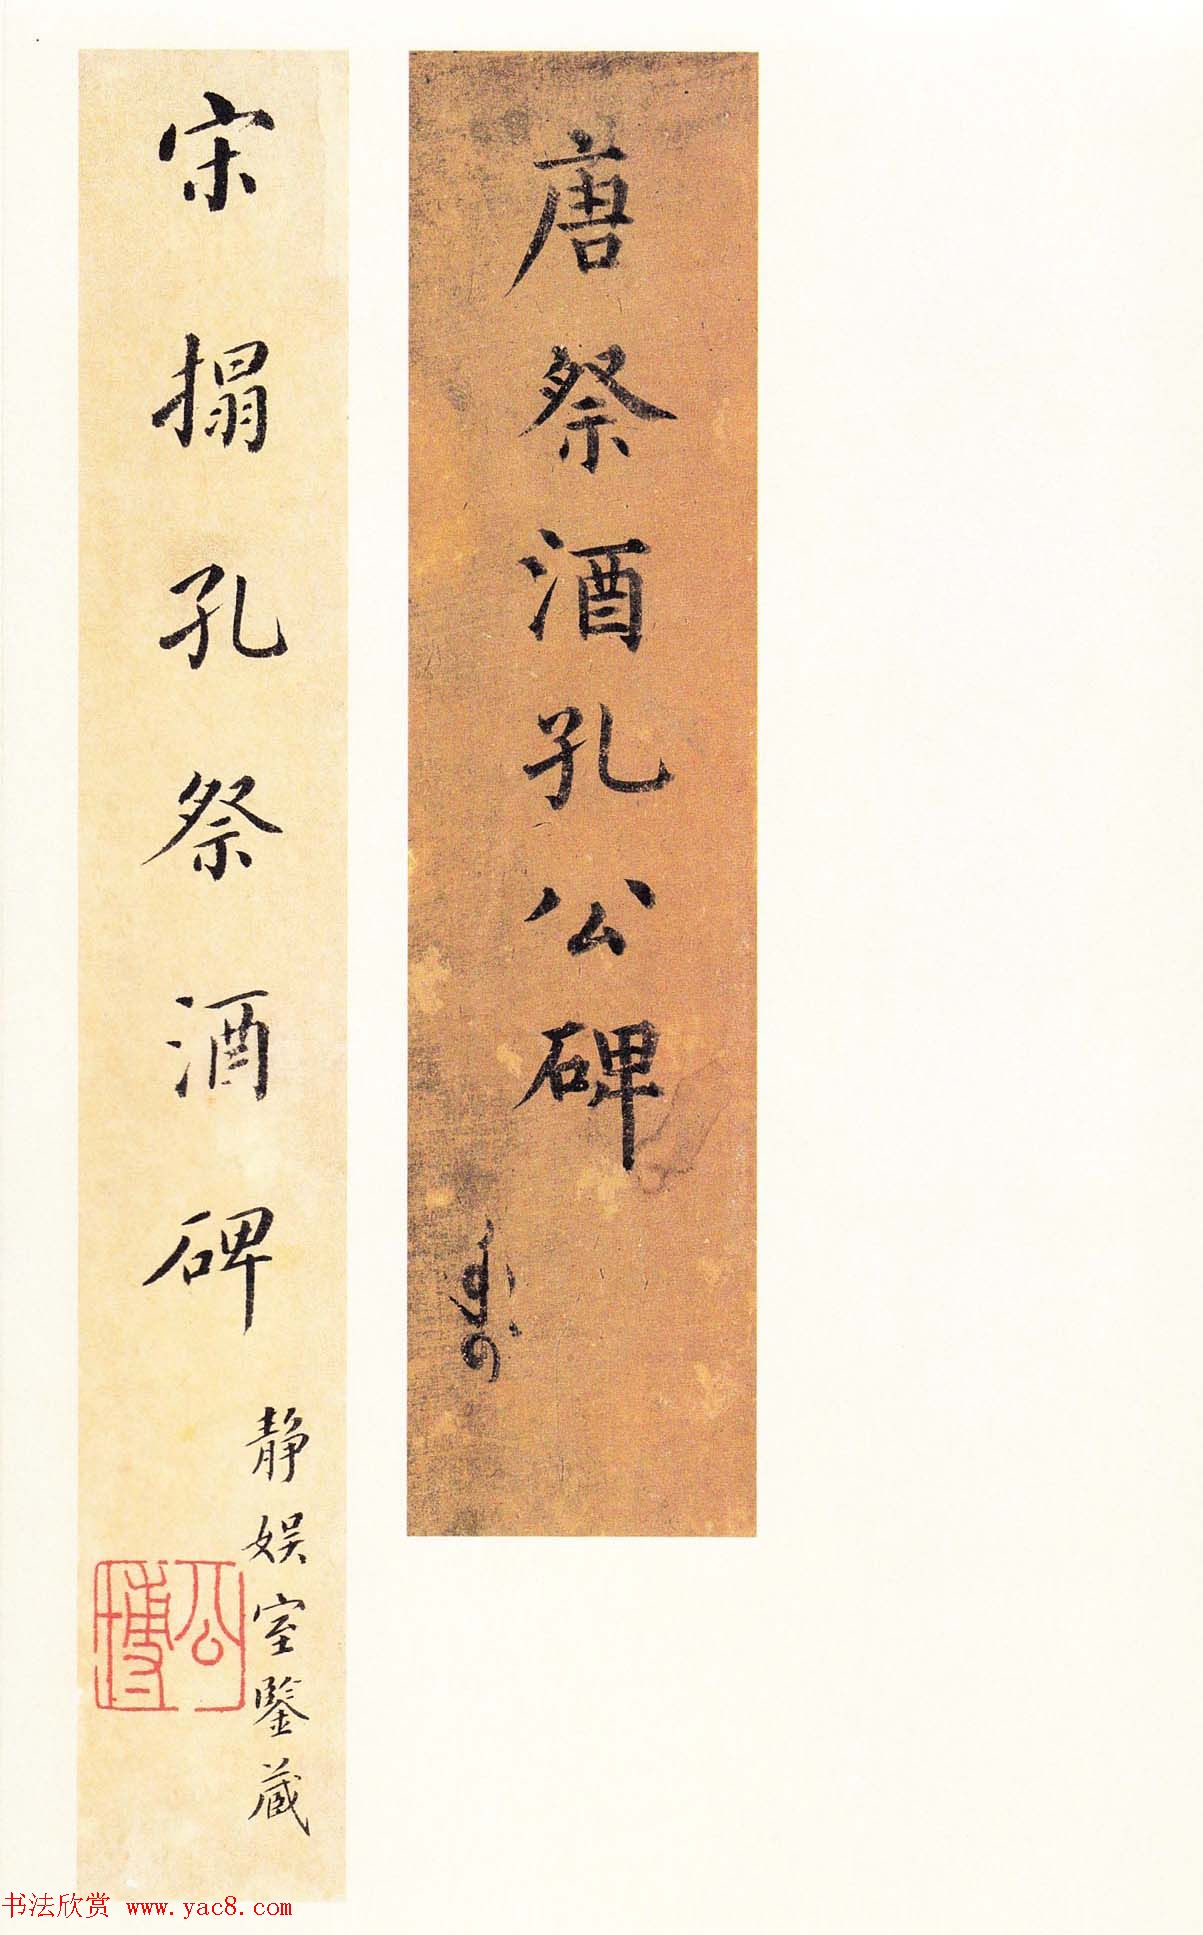 唐祭酒孔公碑
宋搨孔祭酒碑
静娱室鑒藏
公博
书法欣赏 www.yac8.com